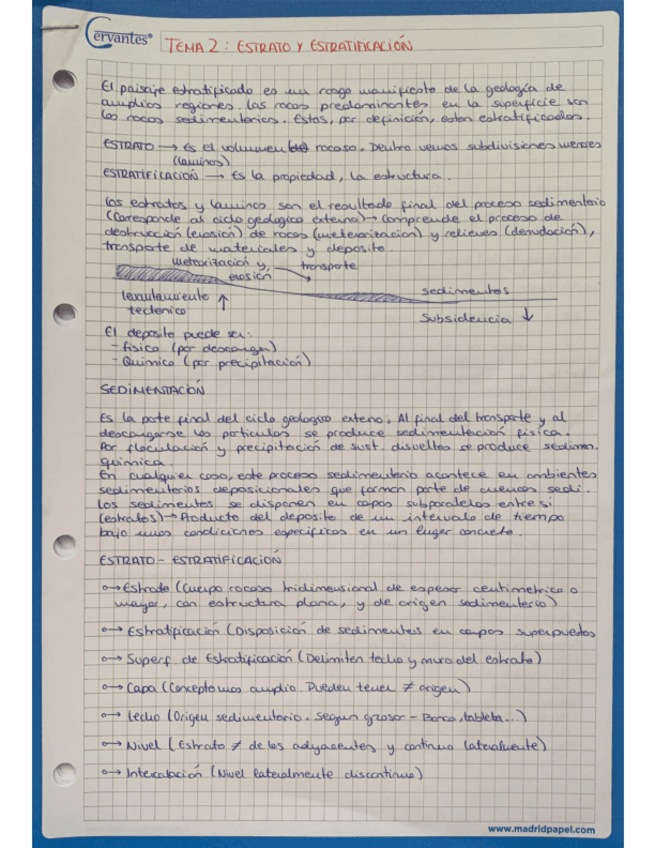 Cervantes®
TEMA 2: ESTRATO Y ESTRATIFICACIÓN
El paisaje estratificado es un rasgo manifiesto de la geología de
amplios regiones. Las rocas predominantes en la superficie son
las rocas sedimentarias. Estas, por definición, estan estratificadas.
ESTRATO → Es el volumen rocoso. Dentro vemos subdivisiones menores
(laminas)
ESTRATIFICACIÓN → Es la propiedad, la estructura.
Los estratos y laminas son el resultado final del proceso sedimentario
(Corresponde al ciclo geologico externo) → Comprende el proceso de
destrucción (erosión) de rocas (meteorización) y relieves (denudación),
transporte de materiales y deposito.
meteorización y transporte
erosión
sedimentos
levantamiento ↑
tectonico
Subsidencia ↓
El deposito puede ser:
- Fisico (por descarga)
- Quimico (por precipitación)
SEDIMENTACIÓN
Es la parte final del ciclo geologico externo; Al final del transporte y al
descargarse las particulas se produce sedimentación física.
Por floculación y precipitación de sust. disueltas se produce sedimen.
quimica.
En cualquier caso, este proceso sedimentario acontece en ambientes
sedimentarios deposicionales que forman parte de cuencas sedi.
Los sedimentos se disponen en capas subparalelas entre si
(estratos) → Producto del deposito de un intervalo de tiempo
bajo unas condiciones especificas en un lugar concreto.
ESTRATO - ESTRATIFICACIÓN
o→ Estrato (Cuerpo rocoso tridimensional de espesor centimetrico o
mayor, con estructura plana, y de origen sedimentario)
o→ Estratificación (Disposición de sedimentos en capas superpuestas
o→ Superf. de Estratificación (Delimitan techo y muro del estrato)
o→ Capa (Concepto mas amplio. Pueden tener ≠ origen)
o→ Lecho (Origen sedimentario. Segun grosor - Banco, tableta...)
o→ Nivel (Estrato ≠ de los adyacentes y continuo lateralmente)
o→ Intercalación (Nivel lateralmente discontinuo)
www.madridpapel.com